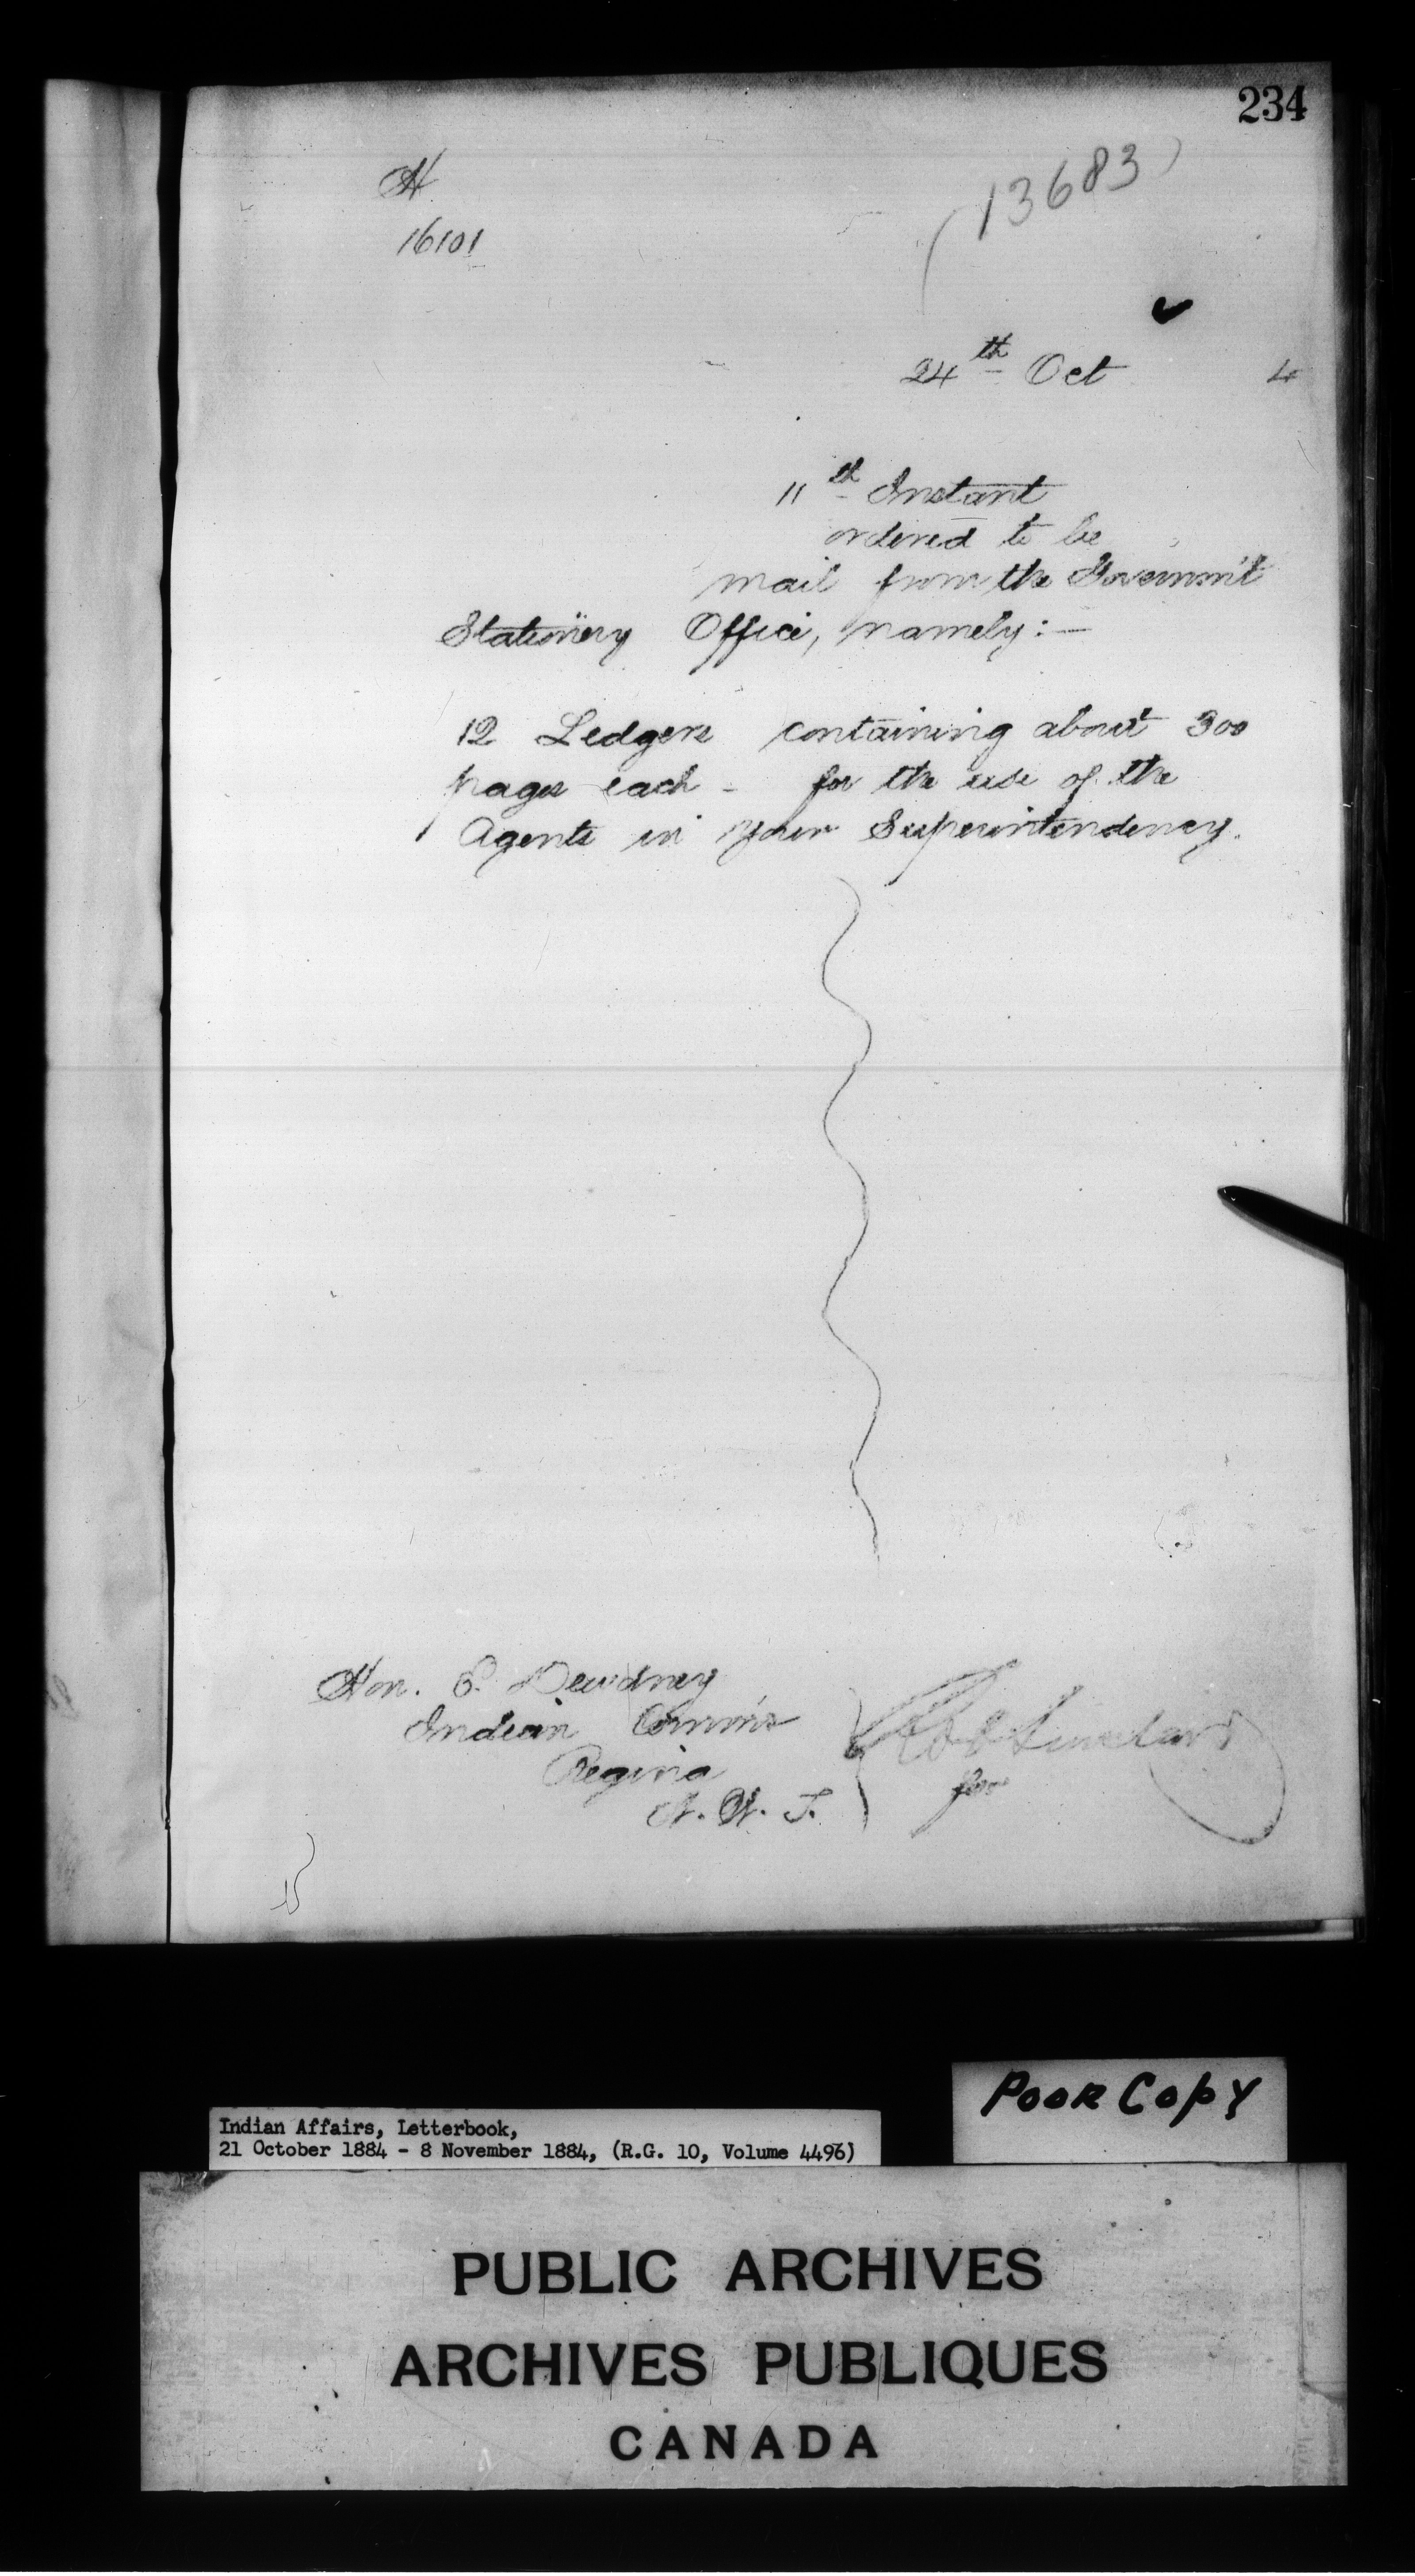 234
H
16101
13683
24th Oct 4
11th Instant
ordered to be
mail from the Governm't
Stationery Office, namely:—
12 Ledgers containing about 300
pages each - for the use of the
Agents in your Superintendency.
Hon. E. Dewdney
Indian Comm'r
Regina
N. W. T.
Sinclair
for
Poor Copy
Indian Affairs, Letterbook,
21 October 1884 - 8 November 1884, (R.G. 10, Volume 4496)
PUBLIC ARCHIVES
ARCHIVES PUBLIQUES
CANADA